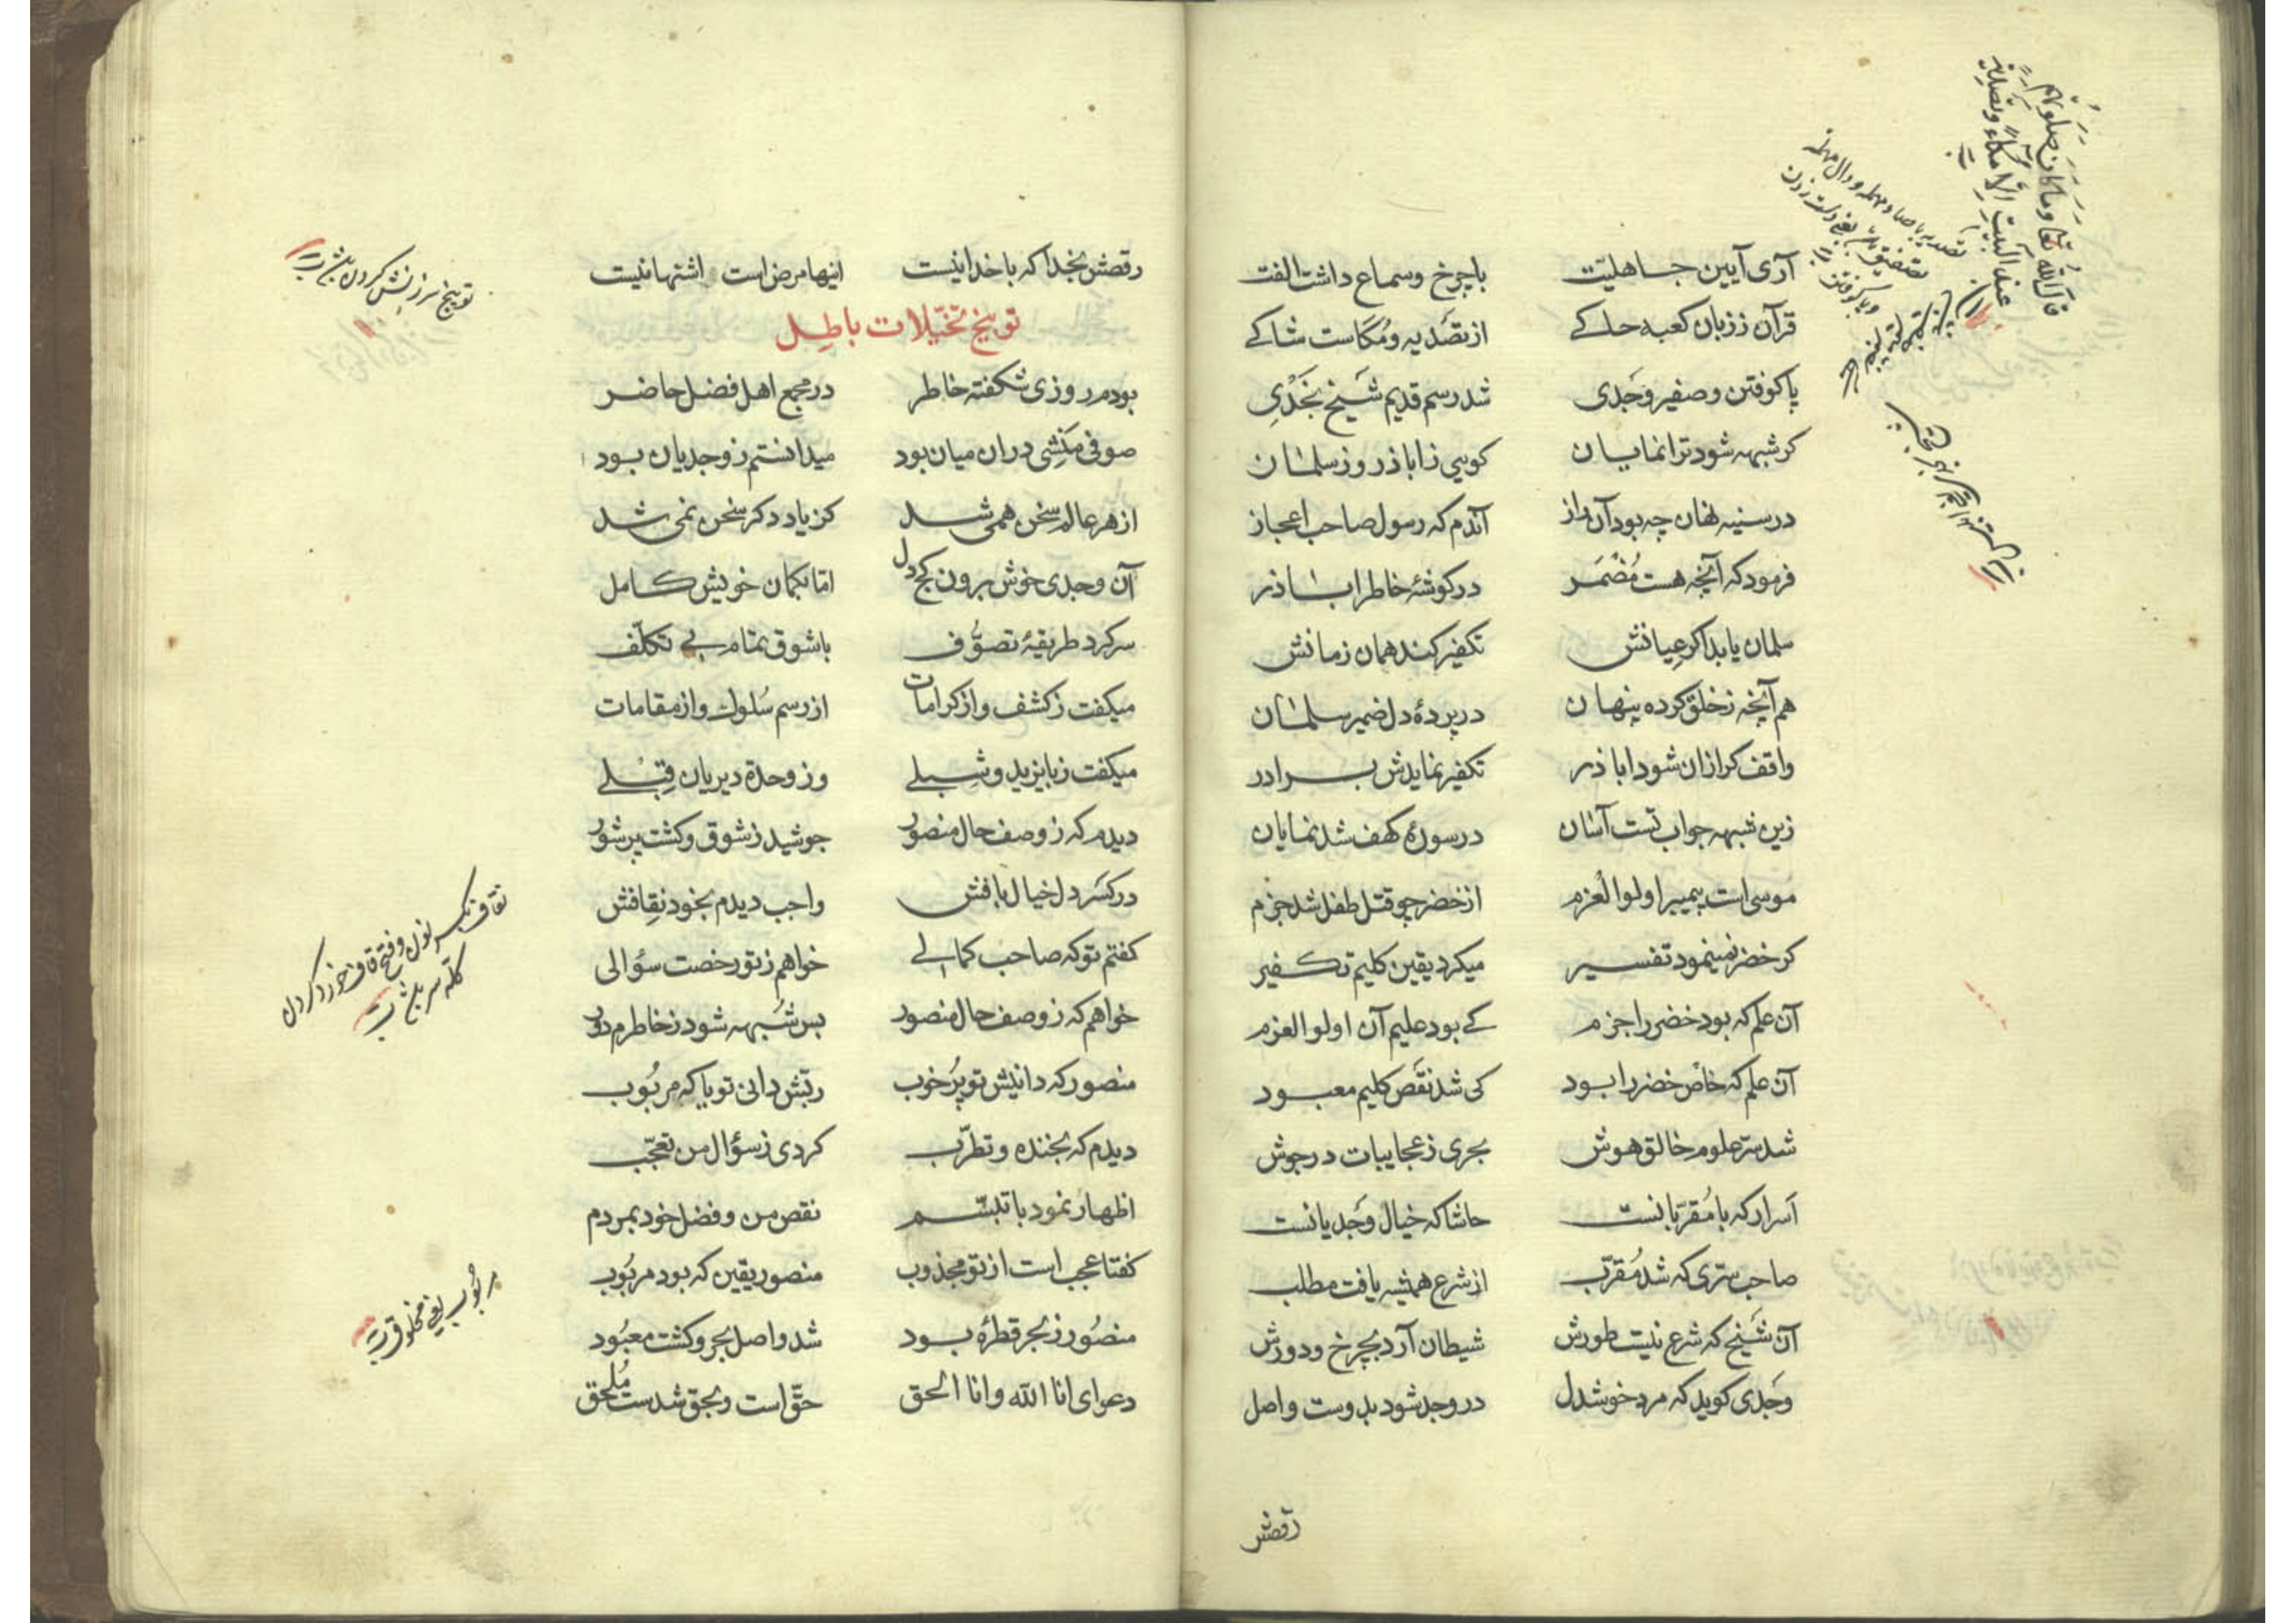 آری آیین جاهلیّت باچرخ وسماع داشت الفت
قرآن ززبان کعبه حاکے ازتصَدیه ومُکاست شاکے
پاکوفتن وصفیر وَجَدی شد رسم قدیم شَیخ نَجَدْیِ
کر شبهه شود ترا نمایان کویی زاباذر وز سلمان
درسینه نهان چه بود آن راز آندم که رسول صاحب اعجاز
فرمود که آنچه هست مُضْمَر درکوشهٔ خاطر اباذر
سلمان یابد اکر عیانش تکفیر کند همان زمانش
هم آنچه زخلق کرده پنهان درپردهٔ دل ضمیر سلمان
واقف کرازان شود اباذر تکفیر نمایدش برادر
زین شبهه جواب تست آسان درسورهٔ کهف شد نمایان
موسی است پیمبر اولوالعزم ازخضر چو قتل طفل شد جزم
کر خضر نمینمود تفسیر میکرد یقین کلیم تکفیر
آن علم که بود خضر را جزم کے بود علیم آن اولوالعزم
آن علم که خاصْ خضر را بود کی شد نقَص کلیم معبود
شد سرّ علوم خالق هوش بحری زعجایبات درجوش
اَسرار که با مُقرّبانست حاشا که خیال وَجَدیانست
صاحب سرّی که شد مُقرّب از شرع همیشه یافت مطلب
آن شَیخ که شرع نیست طورش شیطان آرد بچرخ ودورش
وَجَدی کوید که مرد خوشدل در وجد شود بدوست واصل
رقصش
قال الله تعا وماکان صلوتهم
عند البیت الّا مُکاءً وتصدیة
تصدیه باصاد مهمله ودال مهمله
رقصش بخدا که باخدا نیست اینها مرض است اشتها نیست
توبیخ تخیّلات باطِل
بودم روزی شکفته خاطر درمجمع اهل فضل حاضر
صوفی مَنِشی دران میان بود میدانستم زوجدیان بود
ازهر عالم سخن همی شد کز یاد دکر سخن نمی شد
آن وجدی خوش برون کج دل امّا بکمان خویش کامل
سر کرد طریقهٔ تصوُّف باشوق تمام بے تکلّف
میکفت زکشف واز کرامات از رسم سُلوك واز مقامات
میکفت زبایزید وشِبلے وز وحدة دیریان قِبْلے
دیدم که زوصف حال منصور جوشید زشوق وکشت پرشور
درکسر دل خیال بافش واجب دیدم بخود نِقافش
کفتم تو که صاحب کمالے خواهم زتو رخصت سؤالی
خواهم که زوصف حال منصور بس شَبهه شود زخاطرم دور
منصور که دانیش توپُر خوب ربّش دانی تو یا که مربُوب
دیدم که بخنده وتطرّب کردی زسؤال من تعجّب
اظهار نمود باتبسّم نقص من وفضل خود بمردم
کفتا عجب است از تو مجذوب منصور یقین که بود مربُوب
منصُور زبحر قطرهٔ بود شد واصل بحر وکشت معبُود
دعوای انا الله وانا الحق حقّ است وبحق شدست مُلحق
توبیخ سرزنش کردن
نقاف بکسر نون وفتح قاف خورد کردن
کلّه سر
مربُوب یعنی مخلوق